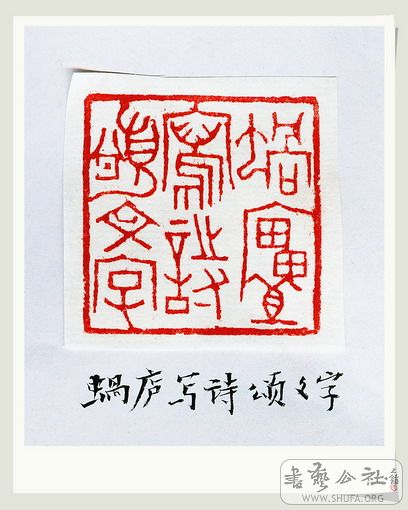 蝸廬
寫詩
頌文字
蝸庐写诗颂文字
書藝公社
WWW.SHUFA.ORG